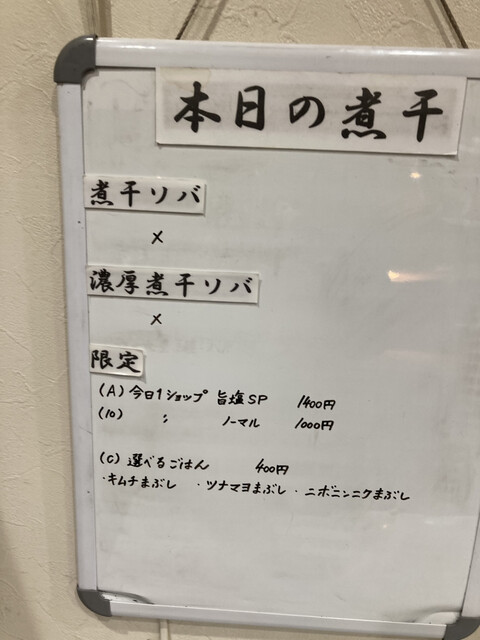 本日の煮干
煮干ソバ
×
濃厚煮干ソバ
×
限定
(A) 今日1ショップ 旨塩SP 1400円
(10) 〃 ノーマル 1000円
(C) 選べるごはん 400円
・キムチまぶし ・ツナマヨまぶし ・ニボニンニクまぶし